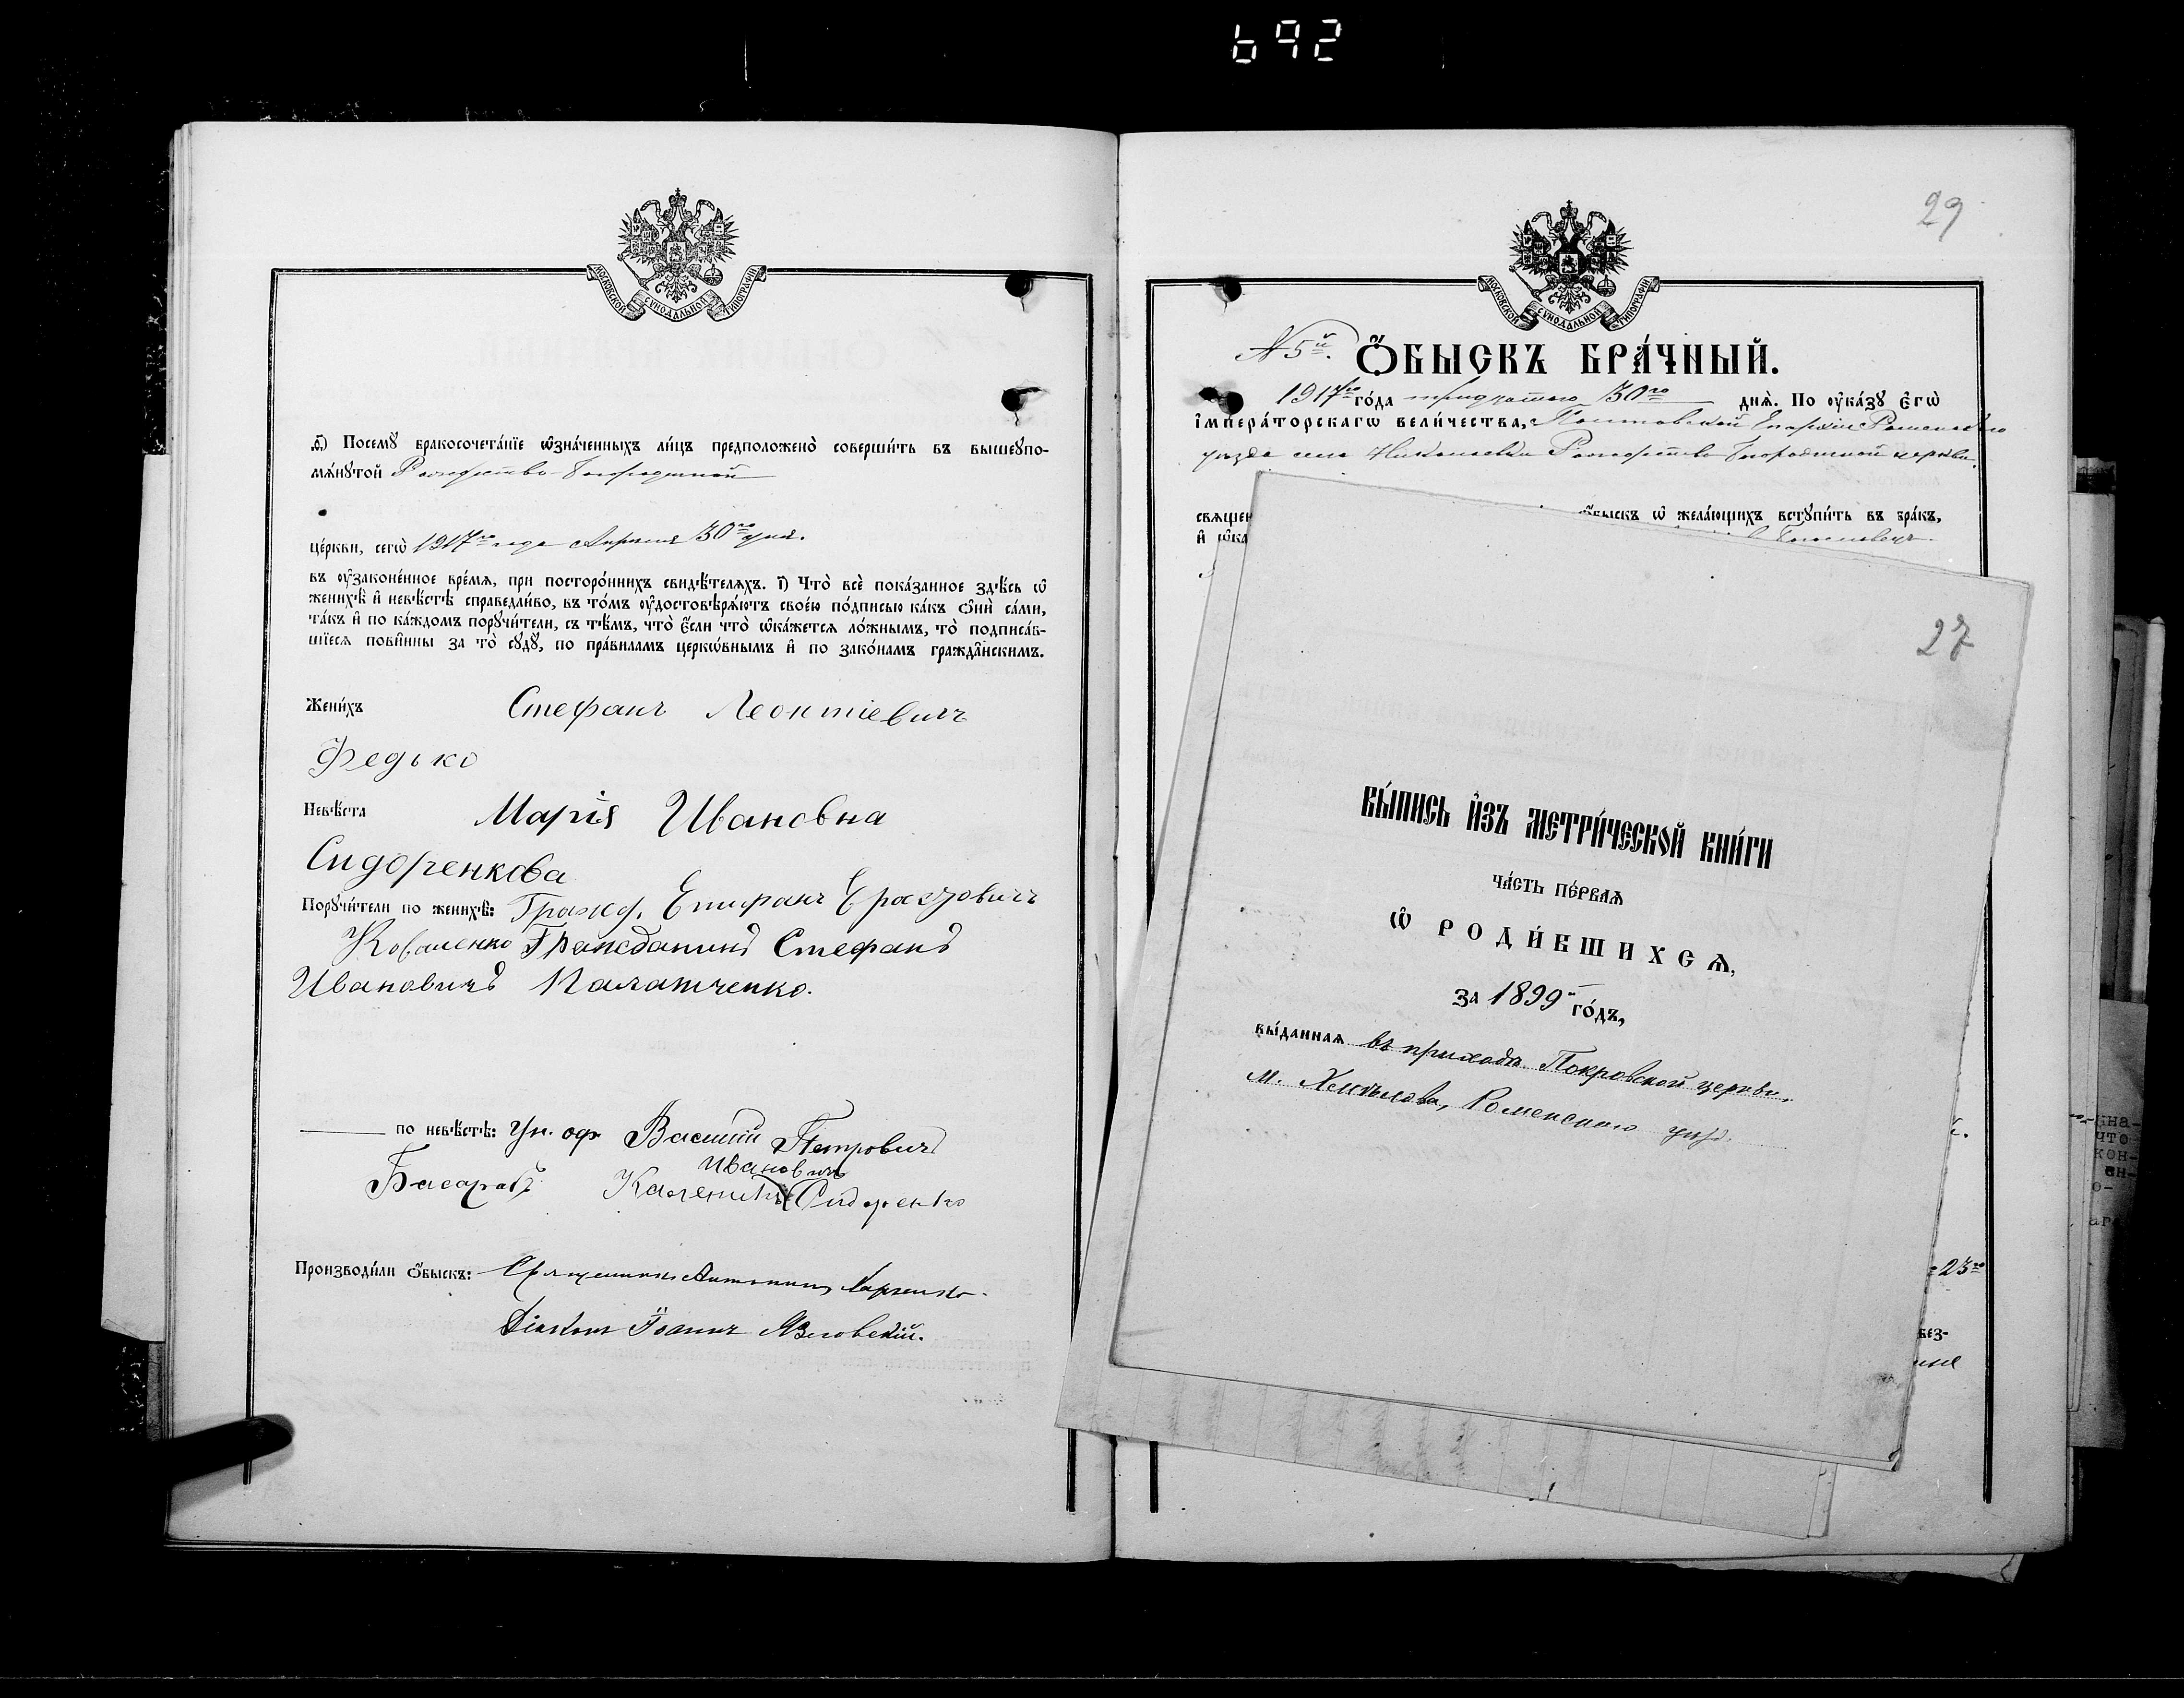 692
МОСКОВСКОЙ СѴНОДАЛЬНОЙ ТИПОГРАФІИ
Посемꙋ̀ бракосочета́нїе ѡ҆зна́ченныхъ ли́цъ предположено̀ соверши́ть въ вышеꙋпо-
мѧ́нꙋтой Рождество-Богородичной
це́ркви, сегѡ̀ 1917го года Апреля 30го дня.
въ ᲂу҆законе́нное вре́мѧ, при посторо́ннихъ свидѣ́телѧхъ. і҃) Что̀ всѐ пока́занное здѣ́сь ѡ҆
женихѣ̀ и҆ невѣ́стѣ справедли́во, въ то́мъ ᲂу҆достовѣрѧ́ютъ свое́ю по́дписью ка́къ ѻ҆нѝ са́ми,
та́къ и҆ по ка́ждомъ порꙋчи́тели, съ тѣ́мъ, что̀ є҆́сли что̀ ѡ҆ка́жетсѧ ло́жнымъ, то̀ подписа́в-
шїесѧ пови́нны за то̀ сꙋдꙋ̀, по пра́виламъ церко́внымъ и҆ по зако́намъ гражда́нскимъ.
Жени́хъ Стефанъ Леонтіевичъ
Федько
Невѣ́ста Марія Ивановна
Сидоренкова
Порꙋчи́тели по женихѣ̀: Гражд. Епифанъ Ерастовичъ
Коваленко Гражданинъ Стефанъ
Ивановичъ Палатченко.
по невѣ́стѣ: Ун. оф. Василій Петровичъ
Басарабъ Ивановичъ
Каленикъ Сидоренко
Производи́ли ѻ҆́быскъ: Священникъ Антоній
Діаконъ Іоаннъ
29
МОСКОВСКОЙ СѴНОДАЛЬНОЙ ТИПОГРАФІИ
N 5й. Ѻ҆́БЫСКЪ БРА́ЧНЫЙ.
1917го го́да тридцатаго 30го днѧ̀. По ᲂу҆ка́зꙋ є҆гѡ̀
і҆мпера́торскагѡ вели́чества, Полтавской Епархіи Роменскаго
уезда села Николаевки Рождество Богородичной церкви,
свѧщен ѻ҆́быскъ ѡ҆ жела́ющихъ встꙋпи́ть въ бра́къ,
и҆ ѡ҆ка
27
ВЫ́ПИСЬ И҆ЗЪ МЕТРИ́ЧЕСКОЙ КНИ́ГИ
ЧА́СТЬ ПЕ́РВАѦ
Ѡ҆ РОДИ́ВШИХСѦ,
за 1899й го́дъ,
вы́даннаѧ въ приходѣ Покровской церкви,
м. Хмѣлова, Роменскаго уѣзд.
23го
без-
на-
что
кон-
ен-
о-